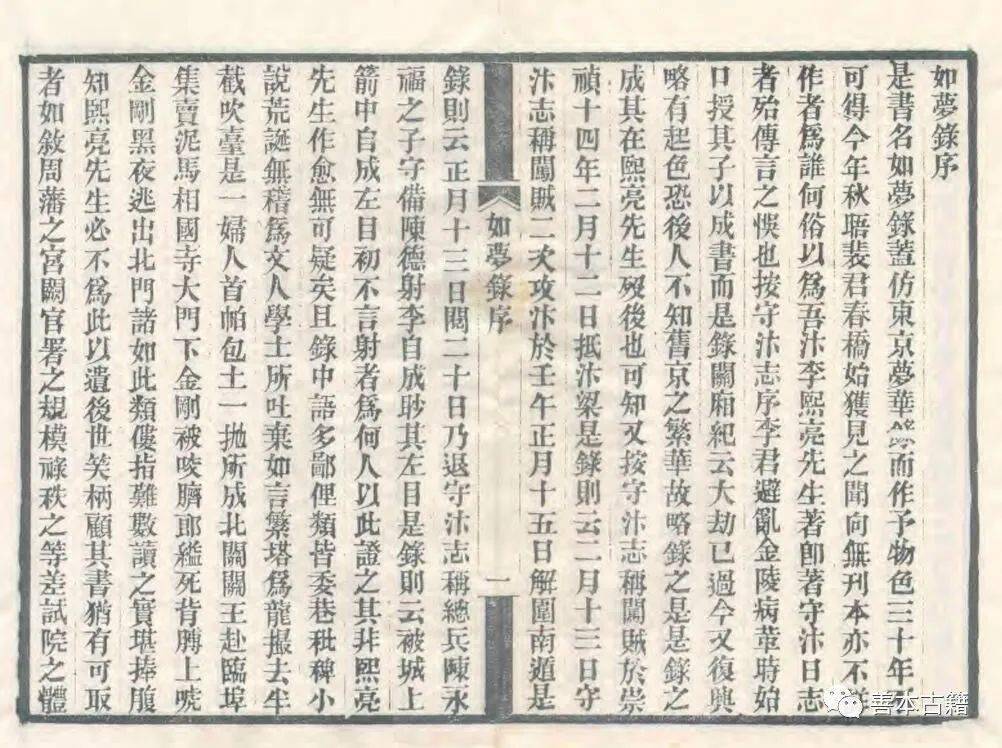 如夢錄序
是書名如夢錄蓋仿東京夢華錄而作予物色三十年
可得今年秋晤裴君春橋始獲見之聞向無刊本亦不
作者爲誰何俗以爲吾汴李熙亮先生著卽著守汴日志
者殆傳言之悞也按守汴志序李君避亂金陵病革時始
口授其子以成書而是錄關廂紀云大劫已過今又復興
略有起色恐後人不知舊京之繁華故略錄之是是錄之
成其在熙亮先生歿後也可知又按守汴志稱闖賊於崇
禎十四年二月十二日抵汴梁是錄則云二月十三日守
汴志稱闖賊二次攻汴於壬午正月十五日解圍南遁是
如夢錄序
一
錄則云正月十三日閱二十日乃退守汴志稱總兵陳永
福之子守備陳德射李自成眇其左目是錄則云被城上
箭中自成左目初不言射者爲何人以此證之其非熙亮
先生作愈無可疑矣且錄中語多鄙俚類皆委巷秕稗小
說荒誕無稽爲文人學士所吐棄如言繁塔爲龍撮去半
截吹臺是一婦人首帕包土一拋所成北關關王赴臨埠
集賣泥馬相國寺大門下金剛被咬臍郎縊死背膊上唬
金剛黑夜逃出北門諸如此類僂指難數讀之實堪捧腹
知熙亮先生必不爲此以遺後世笑柄顧其書猶有可取
者如敘周藩之宮闕官署之規模祿秩之等差試院之體
善本古籍